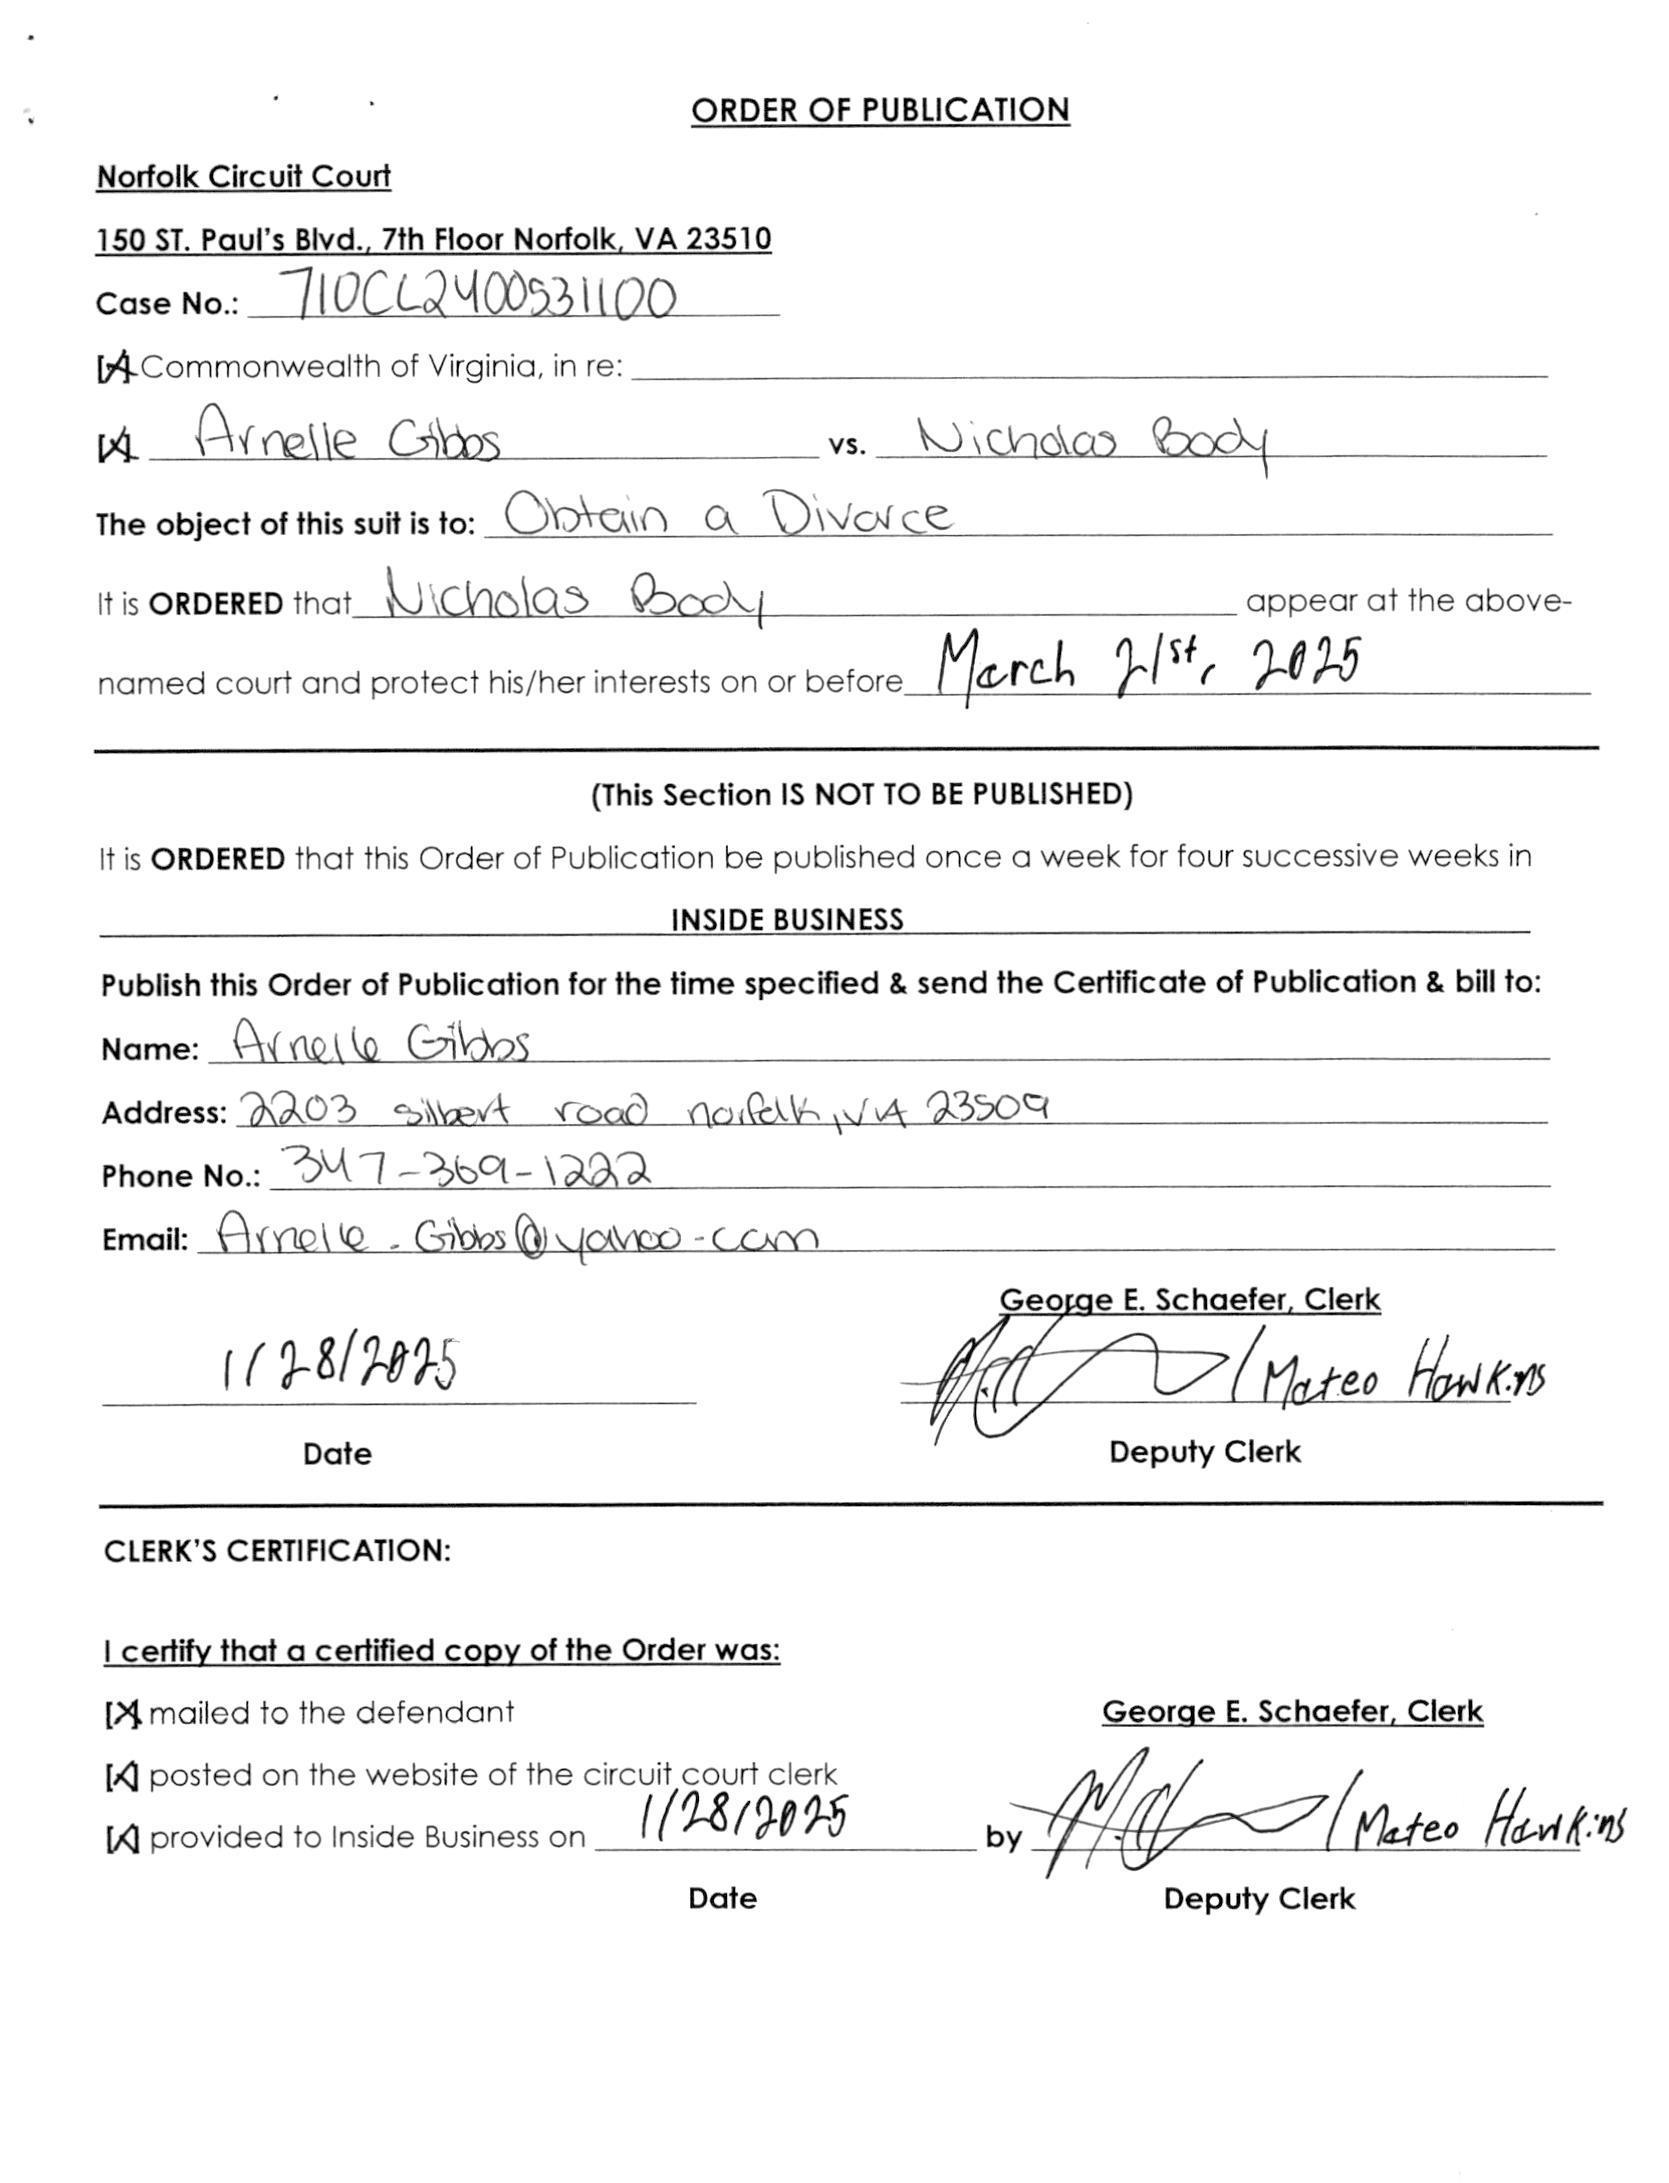 ORDER OF PUBLICATION
Norfolk Circuit Court
150 ST. Paul's Blvd., 7th Floor Norfolk, VA 23510
Case No.: 710CL2400531100
[X] Commonwealth of Virginia, in re:
[X] Arnelle Gibbs vs. Nicholas Body
The object of this suit is to: Obtain a Divorce
It is ORDERED that Nicholas Body appear at the above-
named court and protect his/her interests on or before March 21st, 2025
(This Section IS NOT TO BE PUBLISHED)
It is ORDERED that this Order of Publication be published once a week for four successive weeks in
INSIDE BUSINESS
Publish this Order of Publication for the time specified & send the Certificate of Publication & bill to:
Name: Arnelle Gibbs
Address: 2203 silbert road norfolk, VA 23509
Phone No.: 347-369-1222
Email: Arnelle.Gibbs@yahoo.com
George E. Schaefer, Clerk
1/28/2025 / Mateo Hawkins
Date Deputy Clerk
CLERK'S CERTIFICATION:
I certify that a certified copy of the Order was:
[X] mailed to the defendant George E. Schaefer, Clerk
[X] posted on the website of the circuit court clerk
[X] provided to Inside Business on 1/28/2025 by / Mateo Hawkins
Date Deputy Clerk